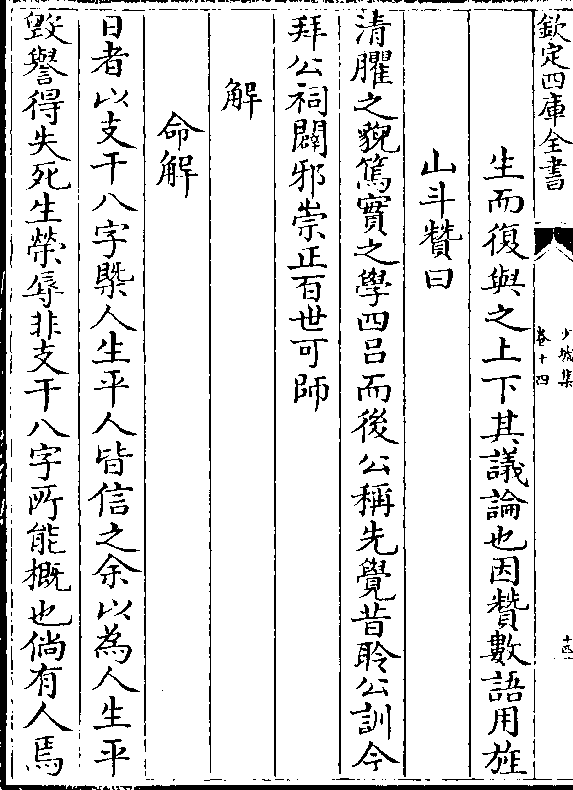 欽定四庫全書
少墟集
卷十四
十四
生而復與之上下其議論也因賛數語用旌
山斗賛曰
清臞之貌篤實之學四吕而後公稱先覺昔聆公訓今
拜公祠闢邪崇正百世可師
解
命解
日者以支干八字槩人生平人皆信之余以為人生平
毁譽得失死生榮辱非支干八字所能概也倘有人焉